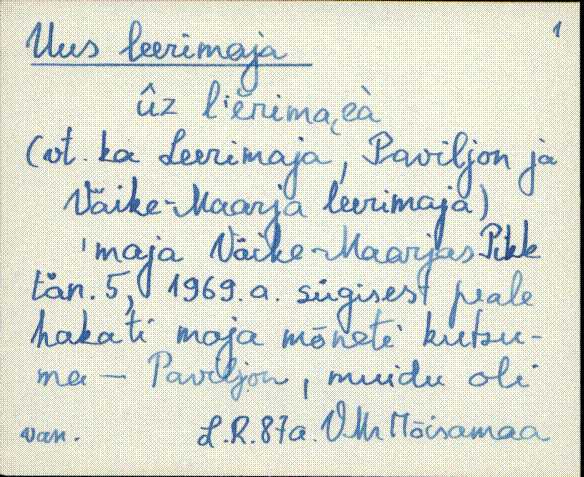 1
Uus leerimaja
(vt. ka Leerimaja, Paviljon ja
Väike-Maarja leerimaja)
'maja Väike-Maarjas Pikk
tän. 5, 1969. a. sügisest peale
hakati maja mõneti kutsu-
ma — Paviljon, muidu oli
van. L.R. 87a. VMr Mõisamaa